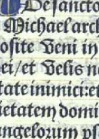 De sancto
Michael arch
osite Veni in
ei/et Velis n
tate inimici:et
ietatem domi
angelorum p